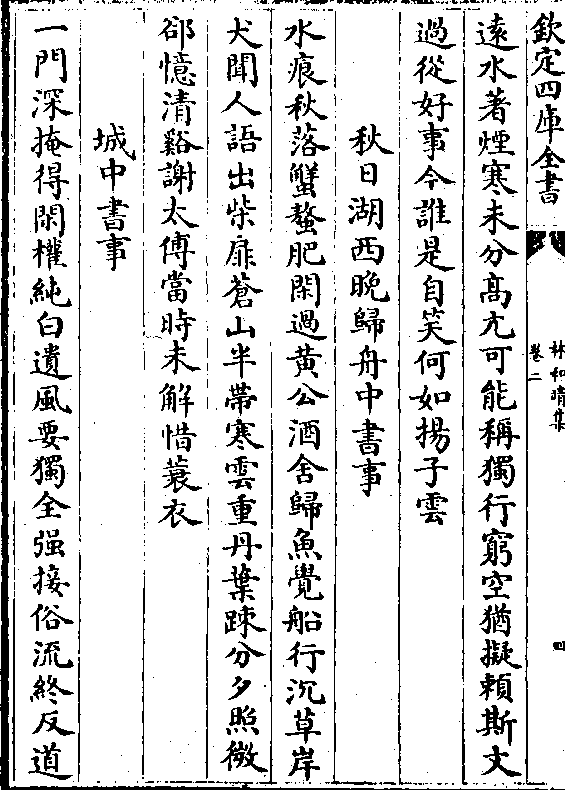 欽定四庫全書
林和靖集
卷二
四
遠水著煙寒未分髙亢可能稱獨行窮空猶擬頼斯文
過從好事今誰是自笑何如揚子雲
秋日湖西晩歸舟中書事
水痕秋落蟹螯肥閑過黄公酒舍歸魚覺船行沉草岸
犬聞人語出柴扉蒼山半帶寒雲重丹葉踈分夕照微
郤憶清谿謝太傅當時未解惜蓑衣
城中書事
一門深掩得閑權純白遺風要獨全强接俗流終反道